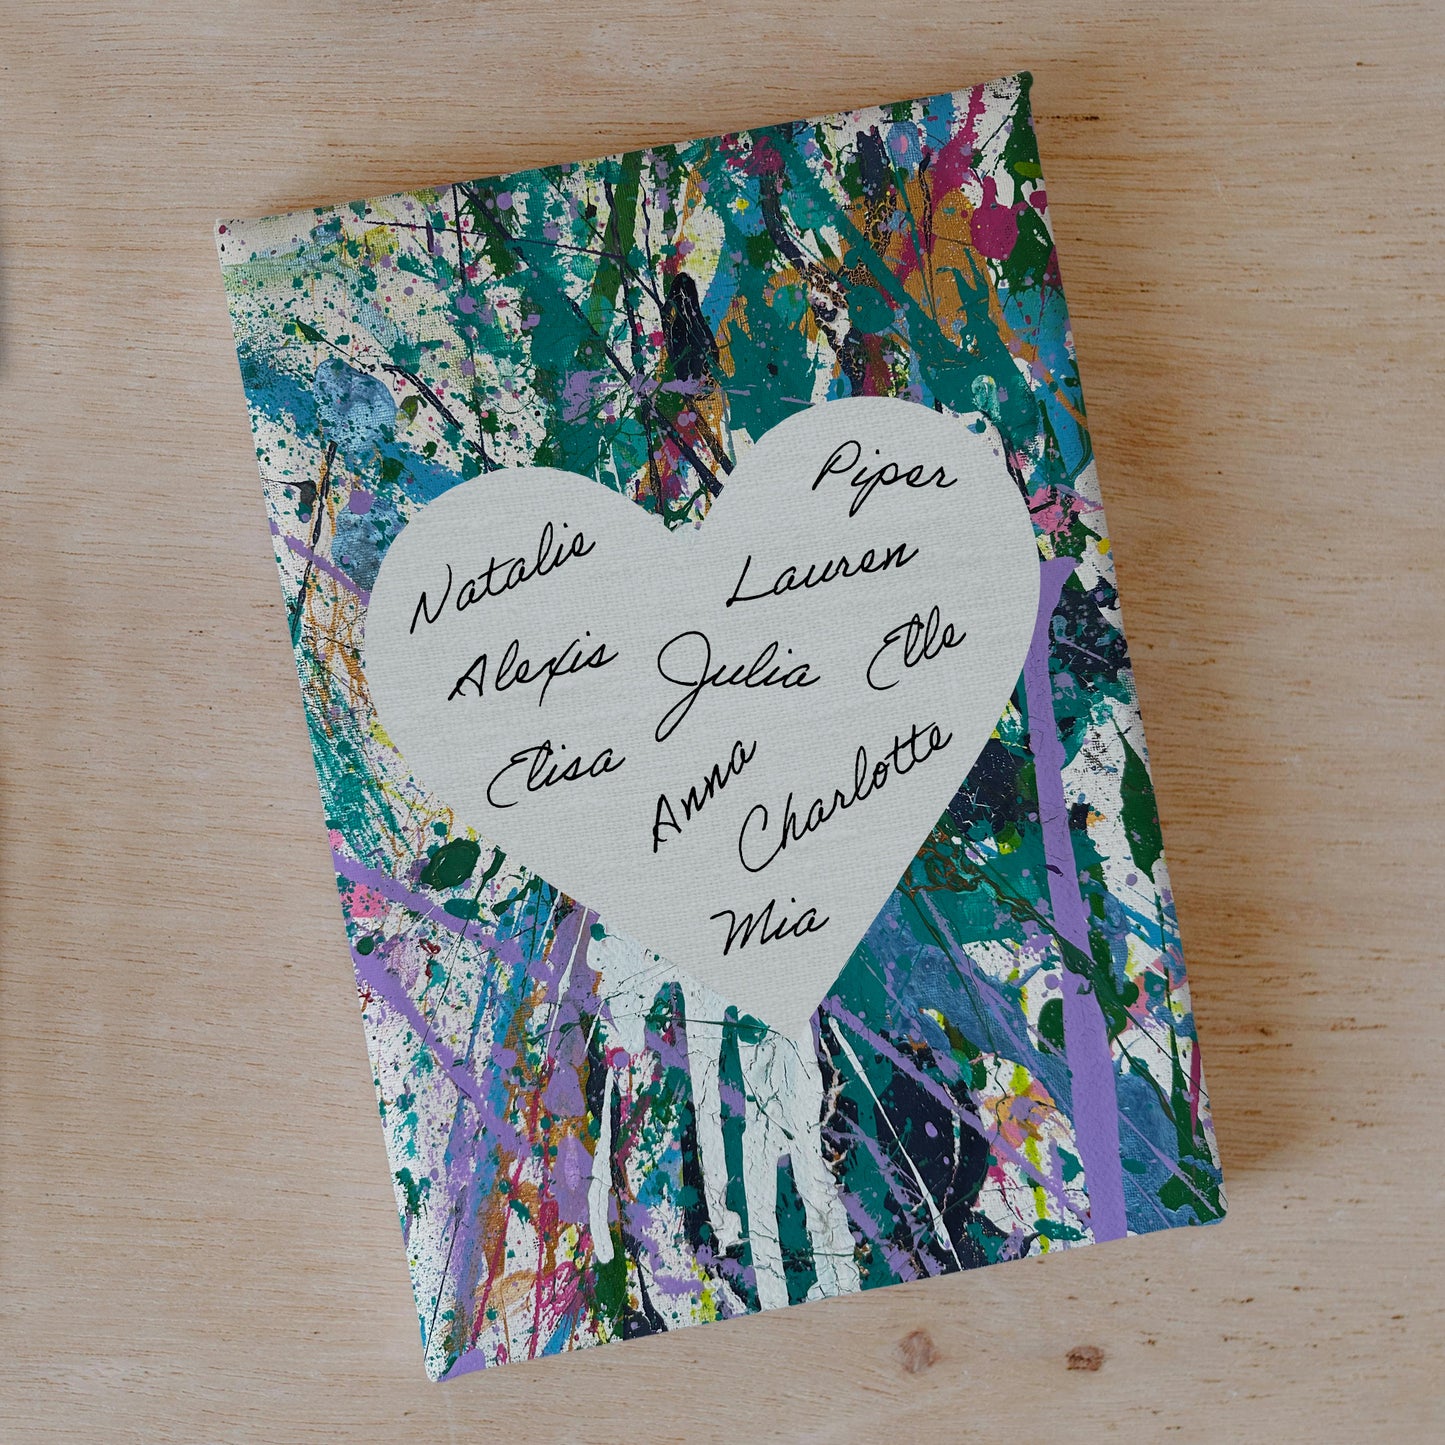 Piper
Natalie
Lauren
Alexis
Julia
Elle
Elisa
Anna
Charlotte
Mia